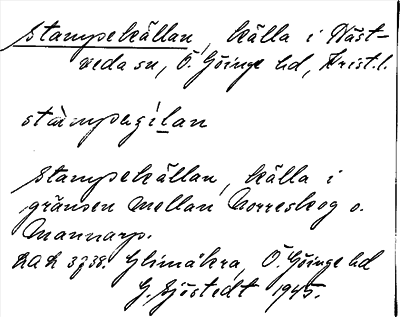 Stampekällan, källa i Näst-
veda sn, Ö. Göinge hd, Krist. l.
stàmpeʒílan
Stampekällan, källa i
gränsen mellan Norreskog o.
Mannarp.
LAL Glimåkra, Ö. Göinge hd
G. Sjöstedt 1945.